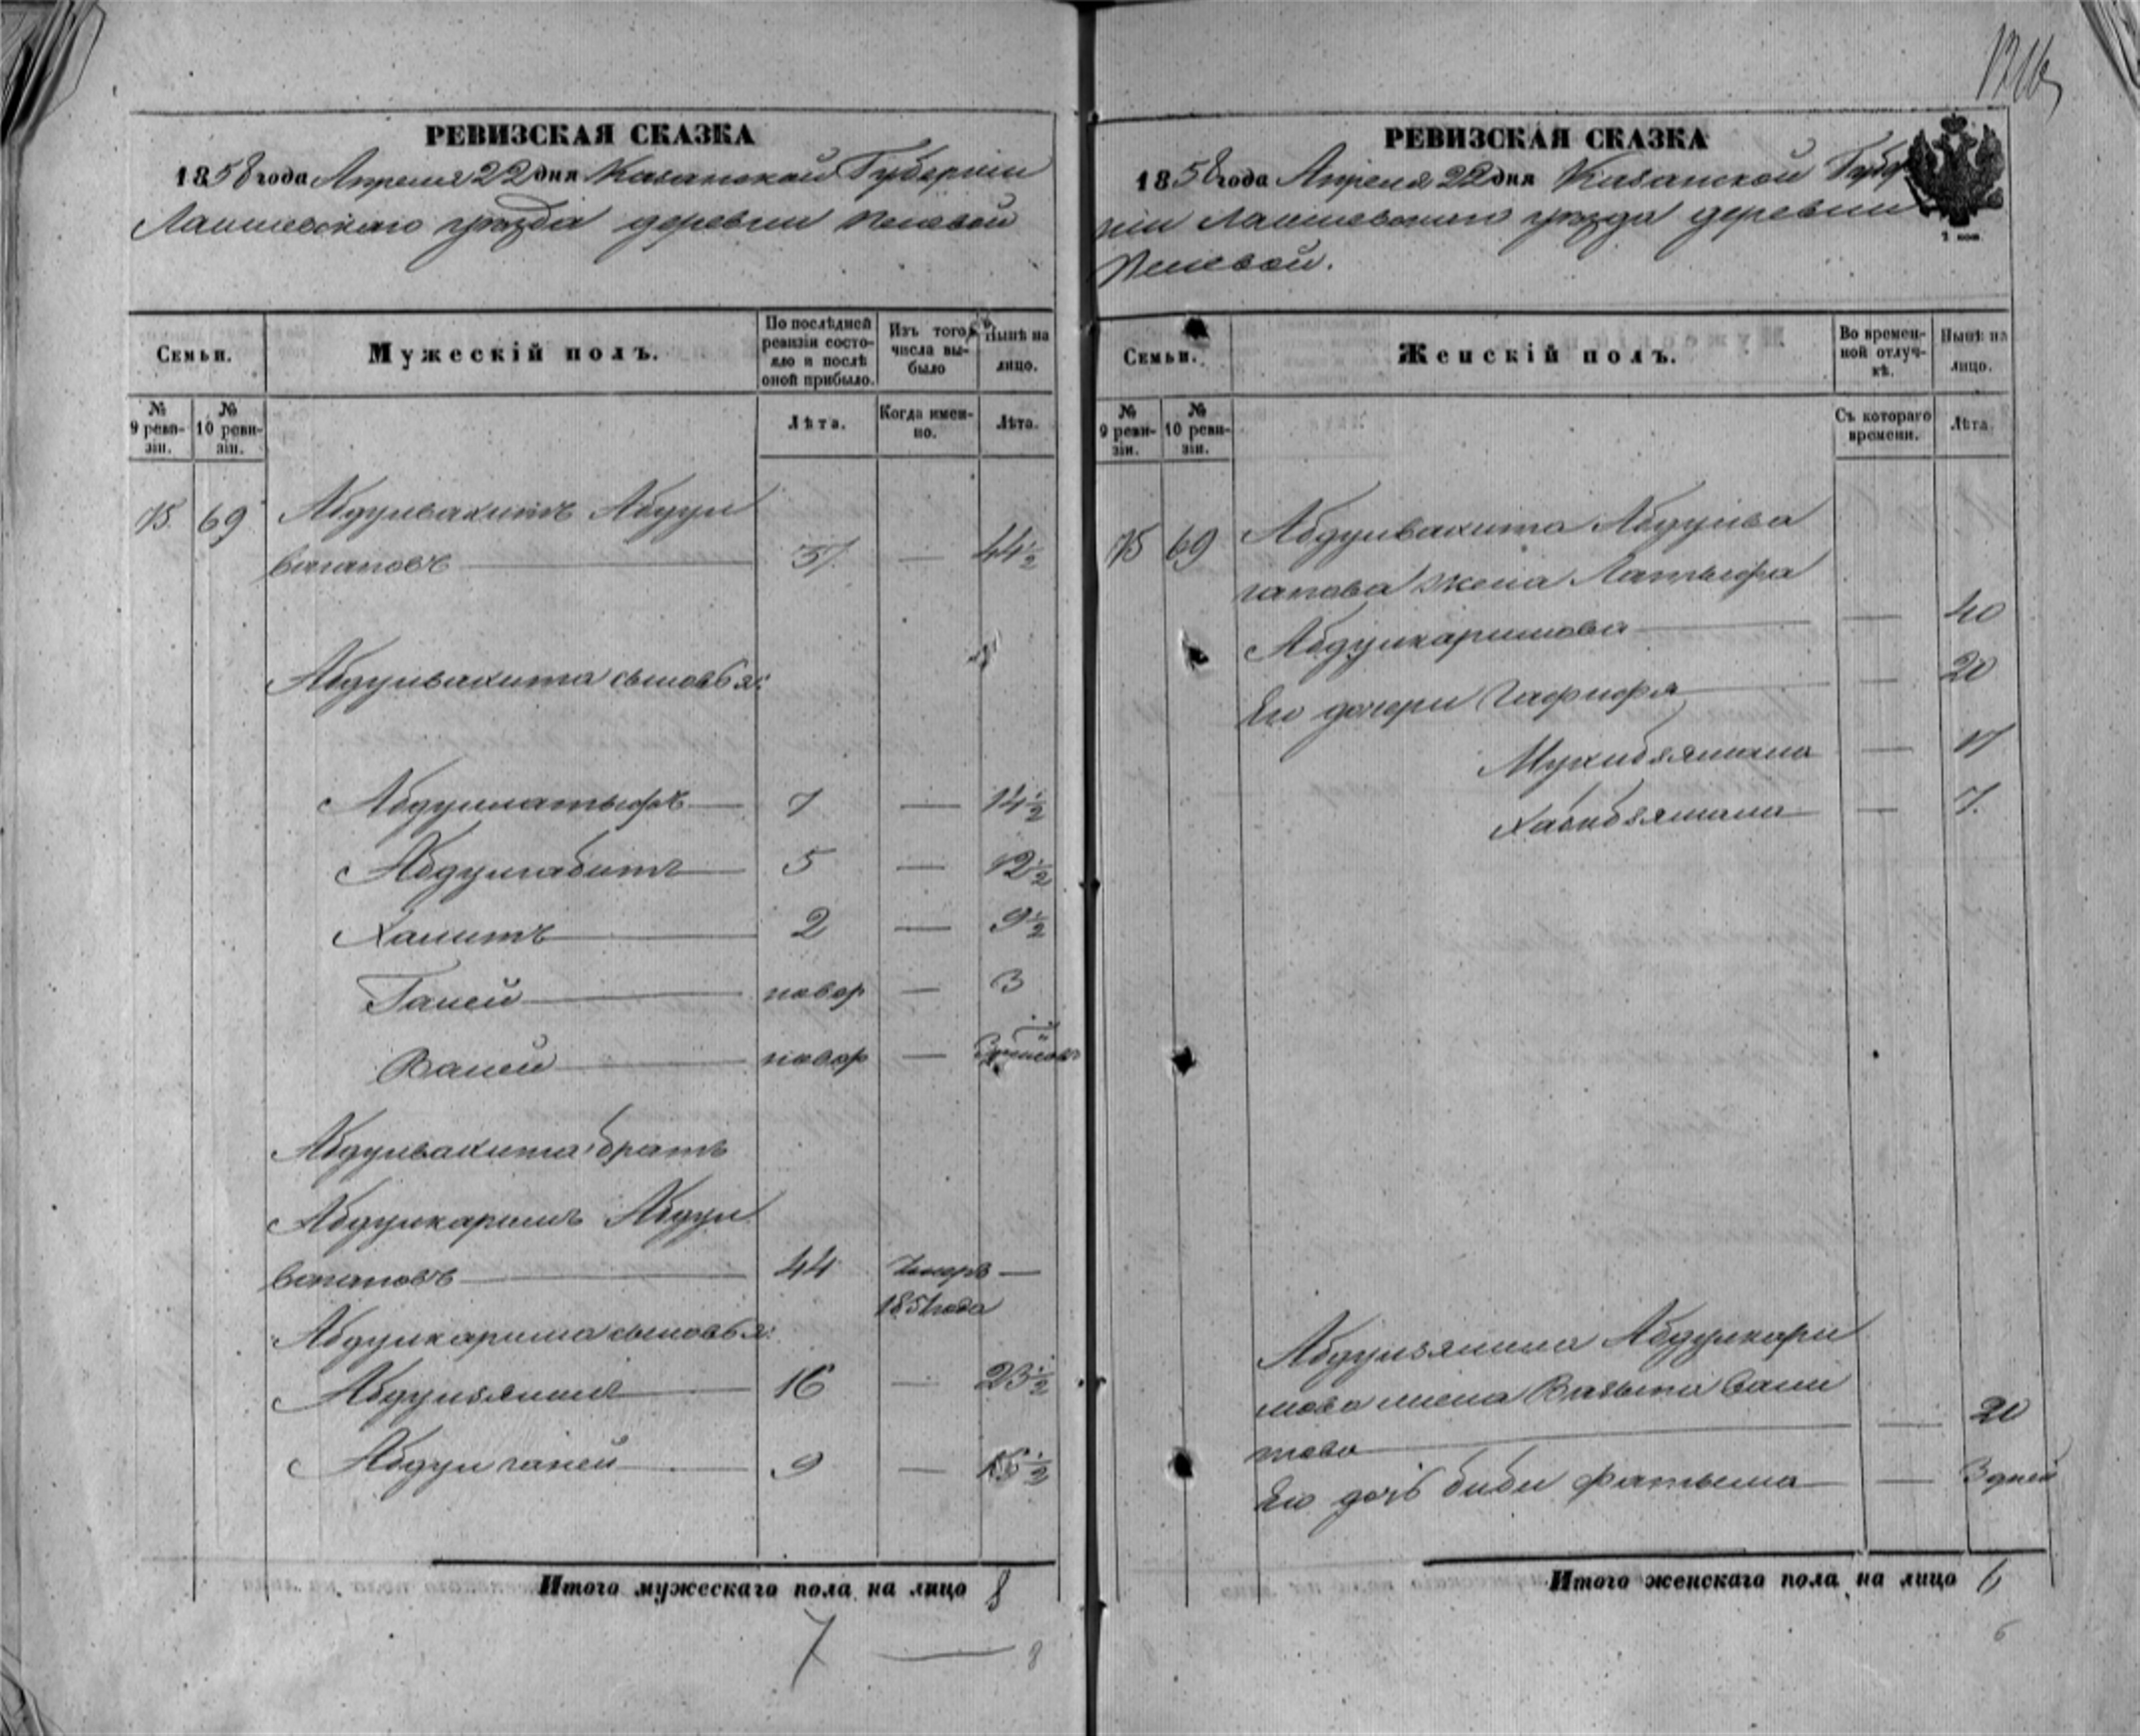 1716
РЕВИЗСКАЯ СКАЗКА
1858 года Апреля 22 дня Казанской Губернии
Лаишевскаго уѣзда деревни
Семьи.
Мужескій полъ.
По послѣдней ревизіи состояло и послѣ оной прибыло.
Изъ того числа выбыло
Нынѣ на лицо.
№ 9 ревизіи.
№ 10 ревизіи.
Лѣта.
Когда именно.
Лѣта.
75 69 Абдулвахитъ Абдул
вагаповъ 37 — 44½
Абдулвахита сыновья:
Абдуллатыфъ 7 — 14½
Абдулгабитъ 5 — 12½
Хамитъ 2 — 9½
Ганей новор — 3
Валей новор —
Абдулвахита братъ
Абдулкаримъ Абдул
вагаповъ 44 Умеръ —
1851 года
Абдулкарима сыновья:
Абдулзямилъ 16 — 23½
Абдулганей 9 — 16½
Итого мужескаго пола на лицо 8
7 — 8
РЕВИЗСКАЯ СКАЗКА
1858 года Апреля 22 дня Казанской Губер
ніи Лаишевскаго уѣзда деревни
2 коп.
Семьи.
Женскій полъ.
Во временной отлучкѣ.
Нынѣ на лицо.
№ 9 ревизіи.
№ 10 ревизіи.
Съ котораго времени.
Лѣта.
75 69 Абдулвахита Абдулва
гапова жена Латыфа
Абдулкаримова — 40
Его дочери Гафифа — 20
Мухибзямала — 17
Хабибзямала — 7.
Абдулзямила Абдулкари
мова жена Вазыпа
това — 20
Его дочь биби фатыма — 3 дней
Итого женскаго пола на лицо 6
6